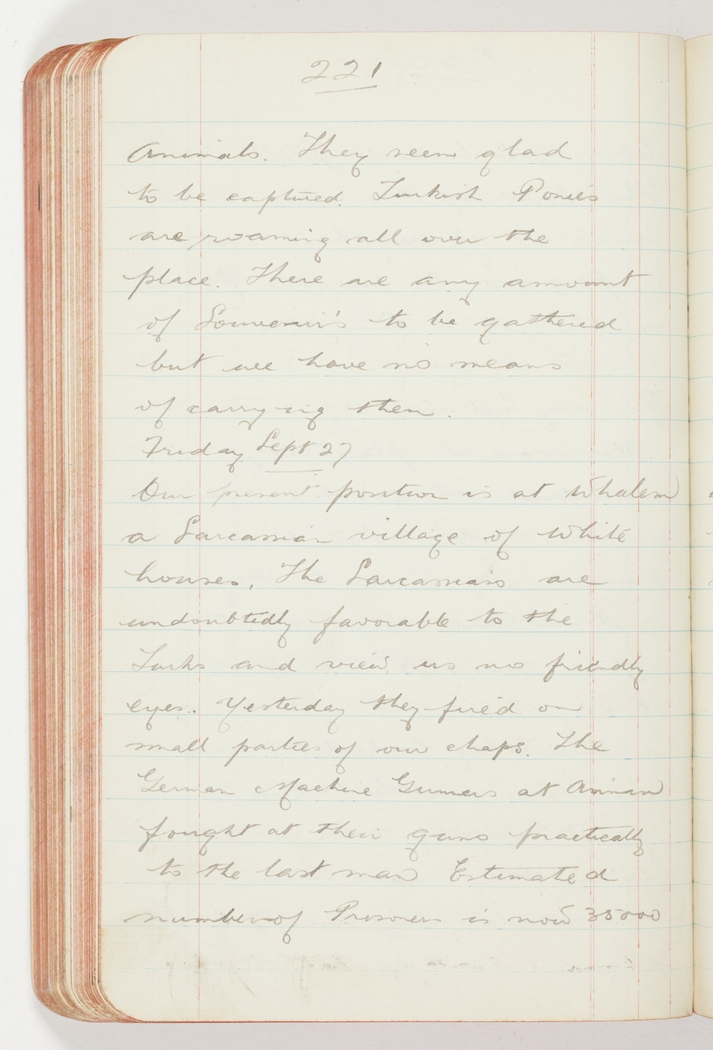 221
Animals. They seem glad
to be captured. Turkish Ponies
are roaming all over the
place. There are any amount
of Souvenir's to be gathered
but we have no means
of carrying them.
Friday Sept 27
Our present position is at Whalem
a Sarcassian village of White
houses. The Sarcassians are
undoubtedly favorable to the
Turks and view us no friendly
eyes. Yesterday they fired on
small parties of our chaps. The
German Machine Gunners at Amman
fought at their guns practically
to the last man Estimated
number of Prisoners is now 35000